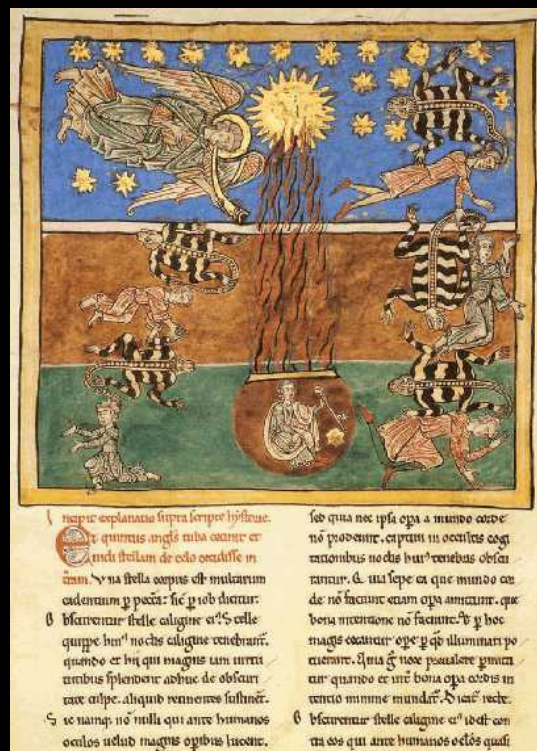 Incipit explanatio supra scripte hystorie.
Et quintus angls tuba cecinit et
uidi stellam de celo cecidisse in
tram. Vna stella corpus est multarum
cadentium p pecca: sic p iob dicitur.
Obscurentur stelle caligine ei'. Stelle
quippe hui' noctis caligine tenebrant.
quando et hii qui magnis iam uirtu
tutibus splendent adhuc de obscuri
tate culpe. aliquid sustinet.
namq; nonnulli qui ante humanos
oculos uelud magnis opibus lucent.
sed quia nec ipsa opa a mundo corde
nō prodeunt. captim in occultis cogi
tationibus noctis hui' tenebris obscu
rantur. Qui sepe ea que mundo cor
de nō faciunt etiam opa amittunt. que
bona intentione nō faciunt. Et p hoc
magis opere p qd illuminari po
tuerant. nocte preualere pmitti
tur quando et int bona opa cordis in
tentio minime mundat. Dicat recte.
Obscurentur stelle caligine ei' idest con
tra eos qui ante humanos oclos quasi